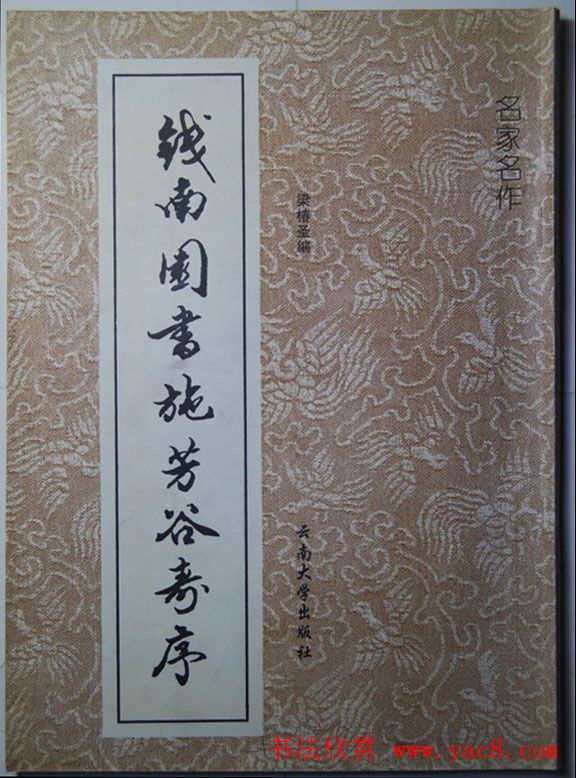 名家名作
梁椿圣编
钱南园书施芳谷寿序
云南大学出版社
书法欣赏 www.yac8.com